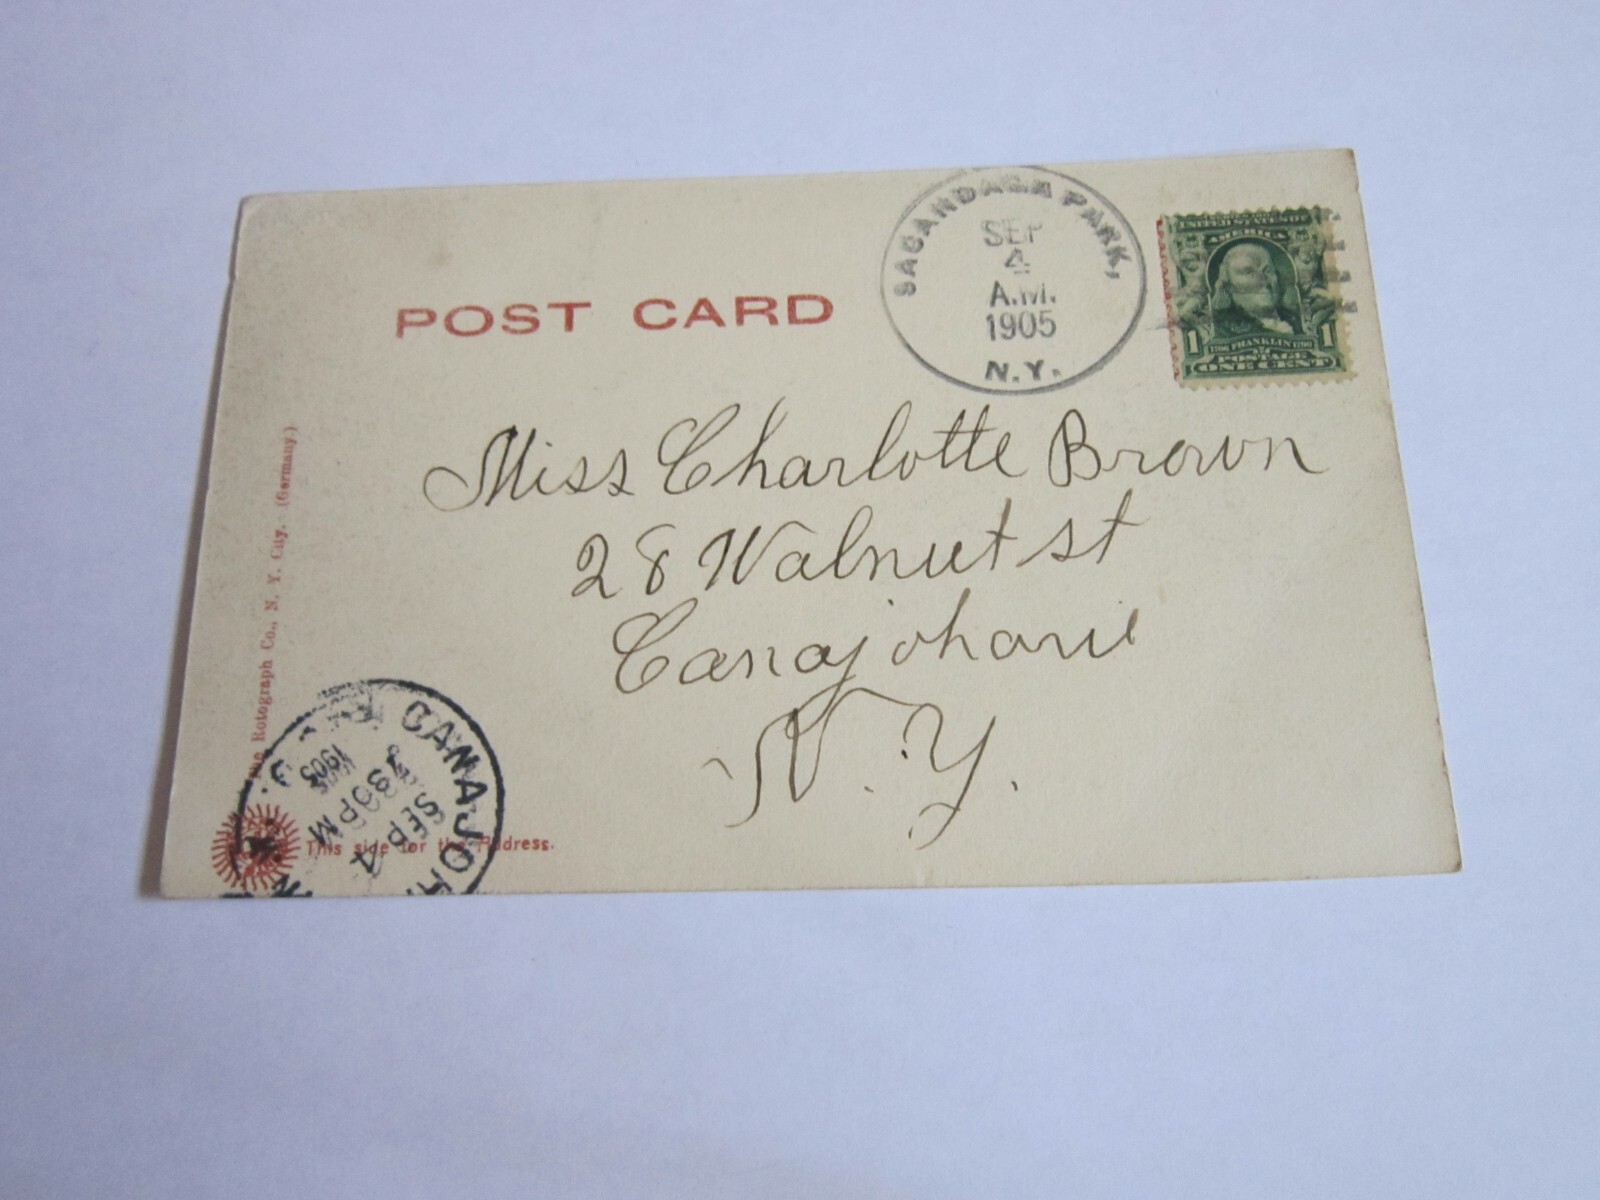 POST CARD
SACANDAGA PARK,
SEP
4
A.M.
1905
N.Y.
UNITED STATES OF
AMERICA
1 1706 FRANKLIN 1790 1
POSTAGE
ONE CENT
Miss Charlotte Brown
28 Walnut st
Canajoharie
N.Y.
Rotograph Co., N. Y. City. (Germany.)
CANAJOH
SEP 4
PM
1905
N
This side for the Address.